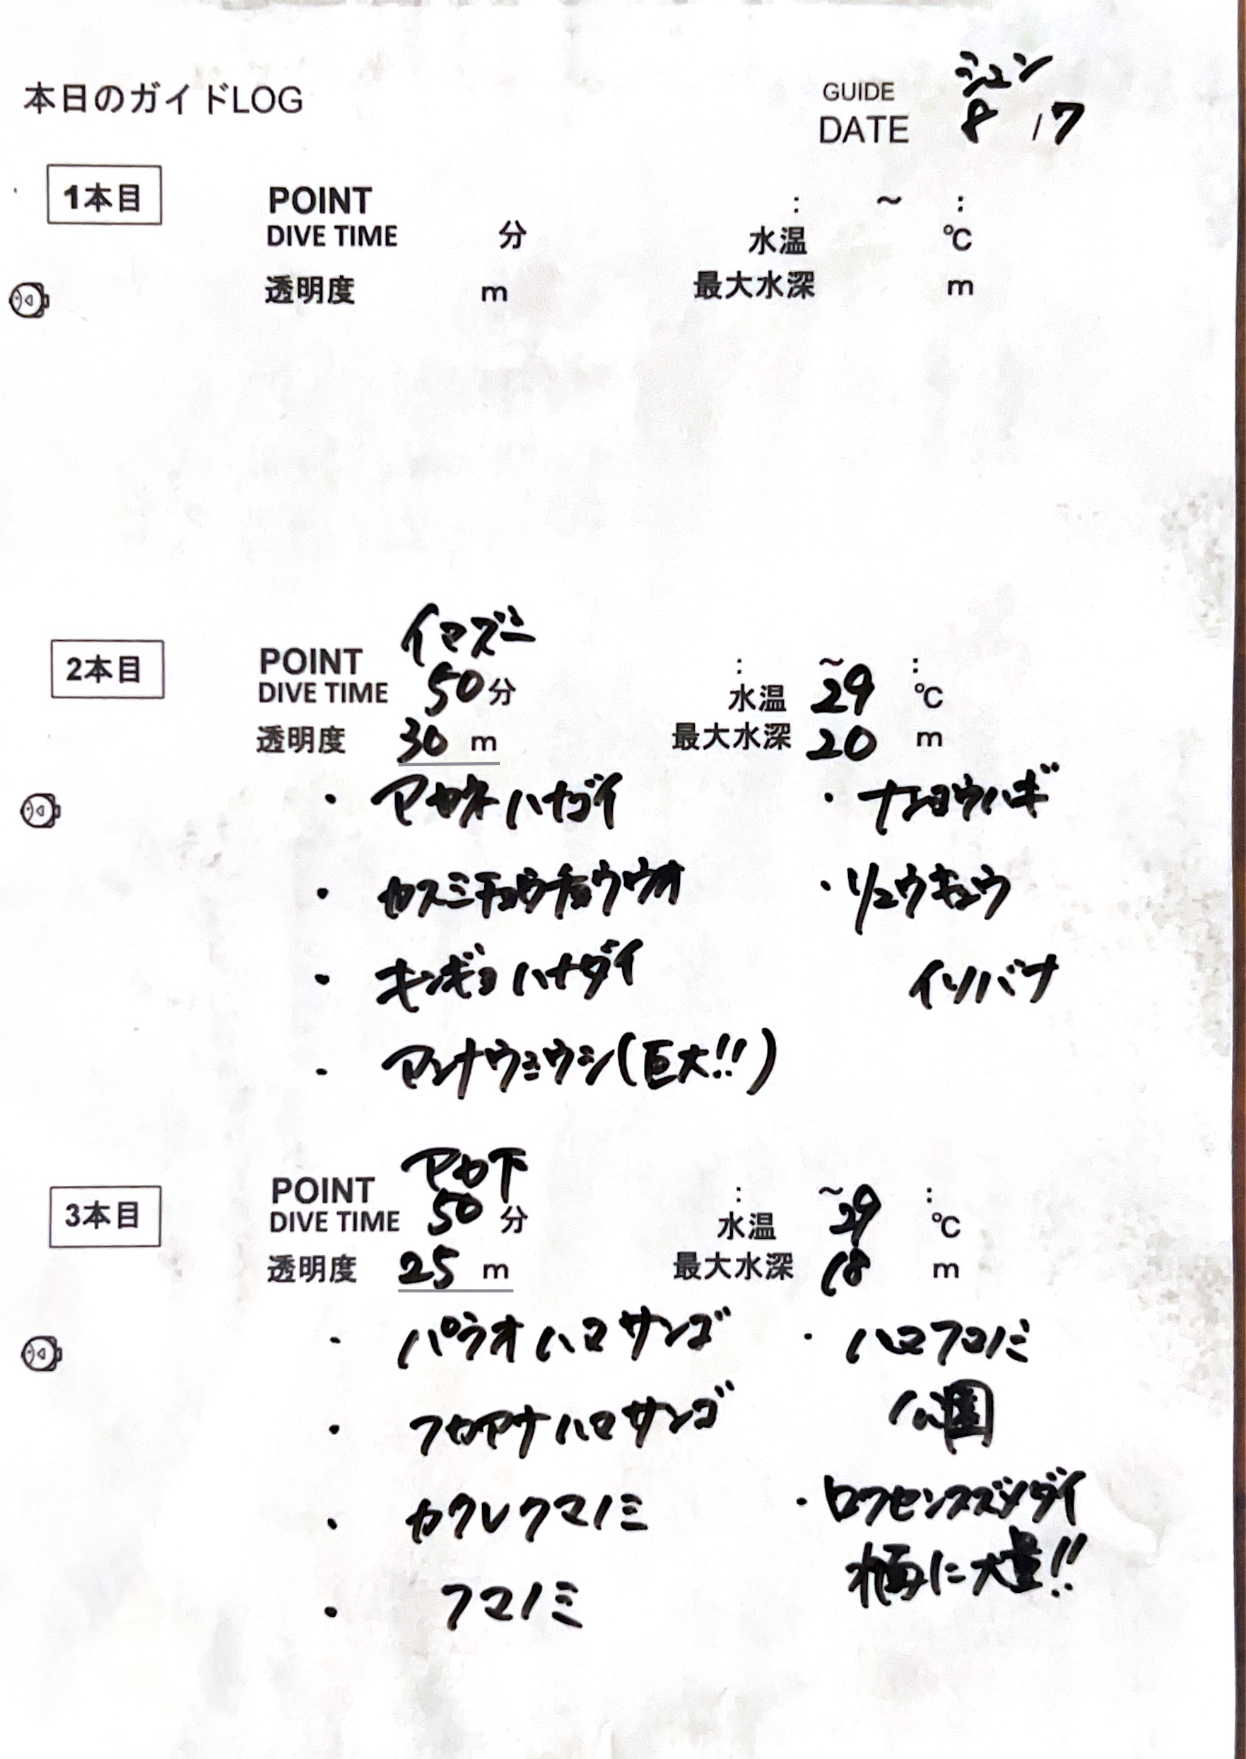 本日のガイドLOG
GUIDE シュン
DATE 8 / 7
1本目
POINT : ～ :
DIVE TIME 分 水温 ℃
透明度 m 最大水深 m
2本目
POINT イマズニ : ～ :
DIVE TIME 50分 水温 29 ℃
透明度 30 m 最大水深 20 m
・アカネハナゴイ ・ナンヨウハギ
・カスミチョウチョウウオ ・リュウキュウ
・キンギョハナダイ イソバナ
・マンナウミウシ(巨大!!)
3本目
POINT アカ下 : ～ :
DIVE TIME 50 分 水温 29 ℃
透明度 25 m 最大水深 18 m
・パラオハマサンゴ ・ハマクマノミ
・フカアナハマサンゴ 公園
・カクレクマノミ ・ロクセンスズメダイ
・クマノミ 大量!!